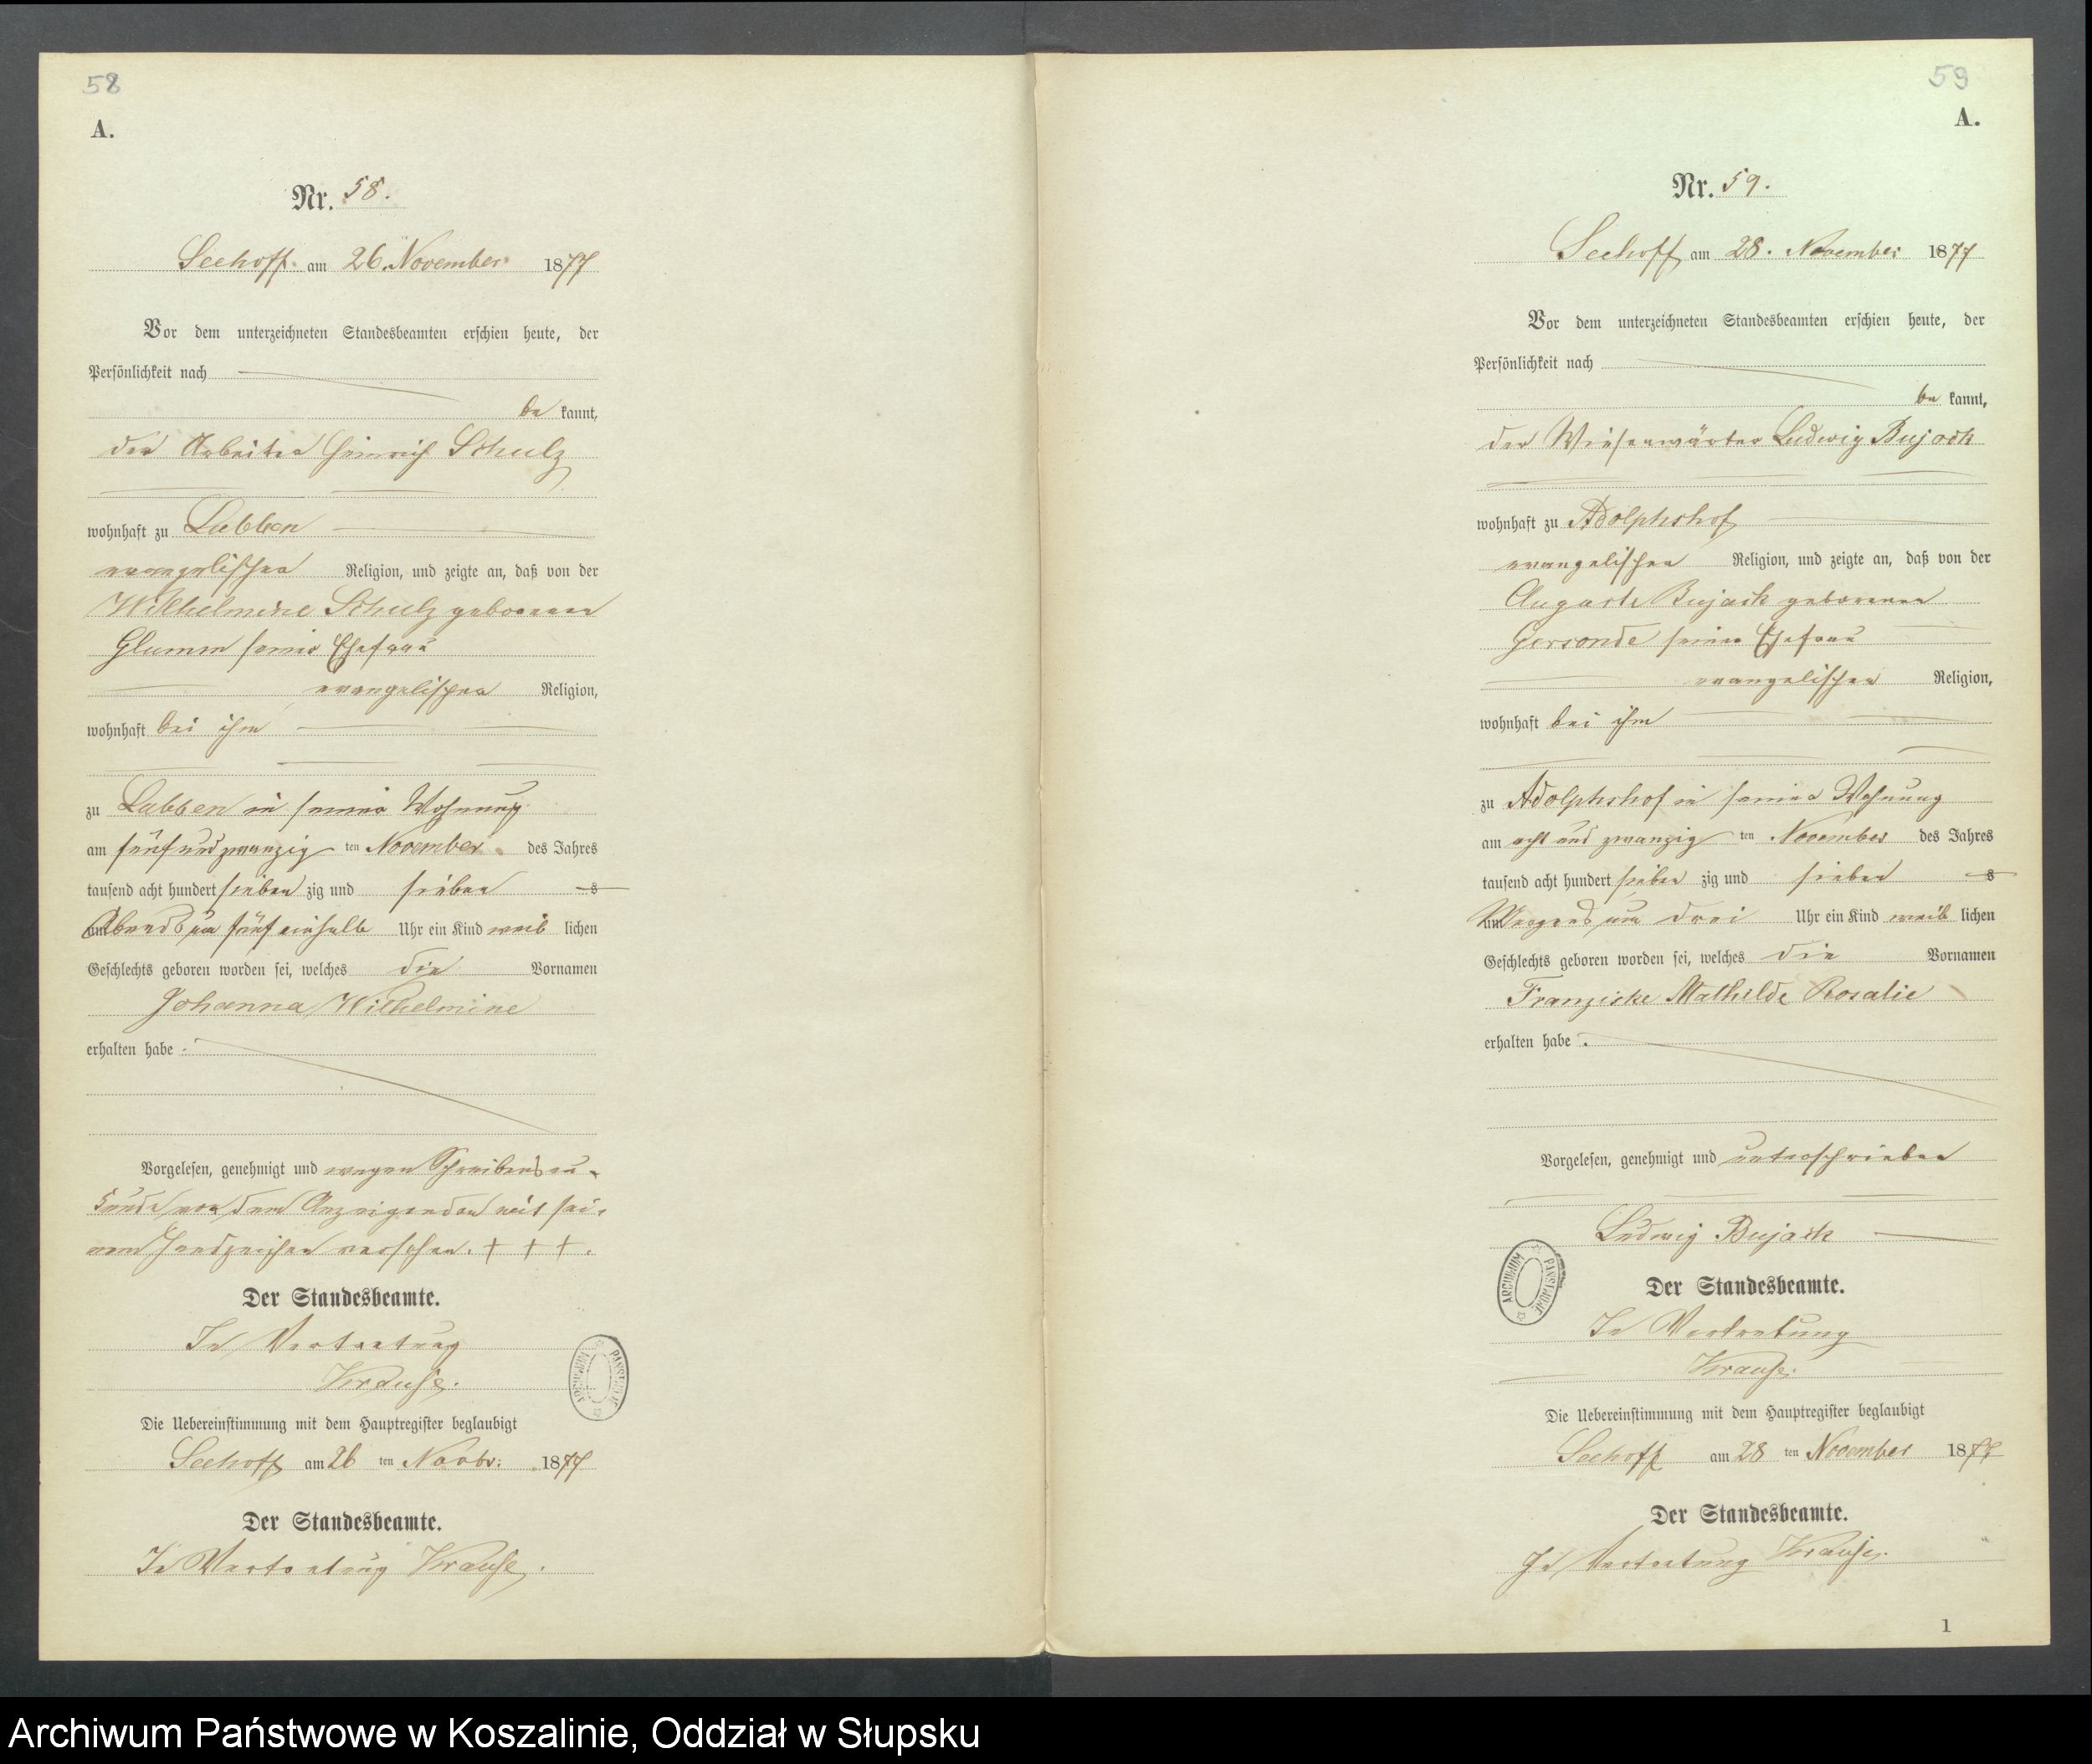 58
A.
Nr. 58.
Seehoff am 26. November 1877
Vor dem unterzeichneten Standesbeamten erschien heute, der
Persönlichkeit nach
be kannt,
der Arbeiter Heinrich Schulz
wohnhaft zu Labben
evangelischer Religion, und zeigte an, daß von der
Wilhelmine Schulz geborenen
Glumm seiner Ehefrau
evangelischer Religion,
wohnhaft bei ihm
zu Labben in seiner Wohnung
am fünf und zwanzig ten November des Jahres
tausend acht hundert sieben zig und sieben s
Abends um fünf einhalb Uhr ein Kind weib lichen
Geschlechts geboren worden sei, welches die Vornamen
Johanna Wilhelmine
erhalten habe.
Vorgelesen, genehmigt und wegen Schreibensun-
kunde von dem Anzeigenden mit sei-
nem Handzeichen versehen. + + +.
Der Standesbeamte.
In Vertretung
Krause.
Die Uebereinstimmung mit dem Hauptregister beglaubigt
Seehoff am 26 ten Novbr: 1877
Der Standesbeamte.
In Vertretung Krause.
ARCHIWUM PAŃSTWOWE
59
A.
Nr. 59.
Seehoff am 28. November 1877
Vor dem unterzeichneten Standesbeamten erschien heute, der
Persönlichkeit nach
be kannt,
der Wiesenwärter Ludwig Bujack
wohnhaft zu Adolphshof
evangelischer Religion, und zeigte an, daß von der
Auguste Bujack geborenen
Gersonde seiner Ehefrau
evangelischer Religion,
wohnhaft bei ihm
zu Adolphshof in seiner Wohnung
am acht und zwanzig ten November des Jahres
tausend acht hundert sieben zig und sieben s
Morgens um drei Uhr ein Kind weib lichen
Geschlechts geboren worden sei, welches die Vornamen
Franziske Mathilde Rosalie
erhalten habe.
Vorgelesen, genehmigt und unterschrieben
Ludwig Bujack
ARCHIWUM PAŃSTWOWE
Der Standesbeamte.
In Vertretung
Krause.
Die Uebereinstimmung mit dem Hauptregister beglaubigt
Seehoff am 28 ten November 1877
Der Standesbeamte.
In Vertretung Krause.
1
Archiwum Państwowe w Koszalinie, Oddział w Słupsku